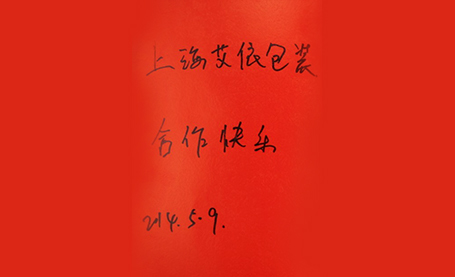 上海艾依包装
合作快乐
2014.5.9.